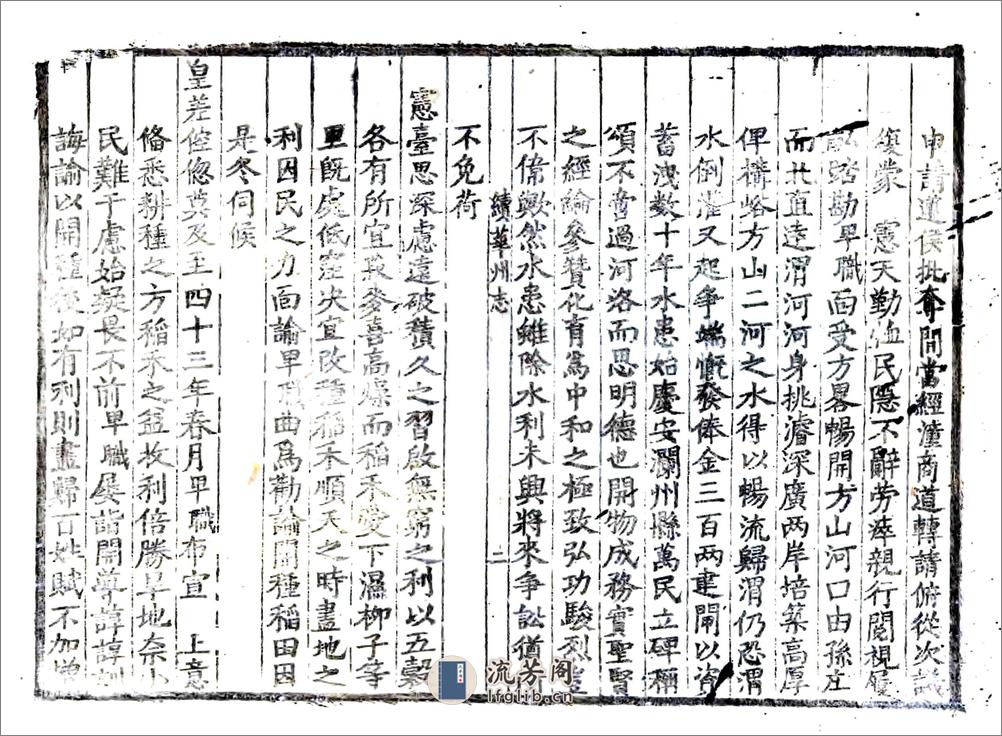 申請道侯批奪間當經潼商道轉請俯從次議
復蒙　憲天勤恤民隱不辭勞瘁親行閱視屢
踏勘卑職面受方畧暢開方山河口由孫庄
而北直達渭河河身挑濬深廣两岸培築高厚
俾構峪方山二河之水得以暢流歸渭仍恐渭
水倒灌又起爭端慨發俸金三百两建閘以資
蓄洩数十年水患始慶安瀾州縣萬民立碑稱
頌不啻過河洛而思明德也開物成務實聖賢
之經綸參贊化育為中和之極致弘功駿烈豈
不偉歟然水患雖除水利未興將來争訟猶
續華州志
二
不免荷
憲臺思深慮遠破積久之習啟無窮之利以五穀
各有所宜菽麥喜高燥而稻禾愛下濕柳子等
里既處低窪决宜改種稻禾順天之時盡地之
利因民之力面諭卑職曲為勸諭開種稻田因
是冬伺候
皇差倥偬莫及至四十三年春月卑職布宣　上意
俻悉耕種之方稻禾之益收利倍勝旱地奈小
民難于慮始疑畏不前卑職屡詣開導諄諄訓
誨諭以開種後如有利則盡歸百姓賦不加增
流芳阁
lfglib.cn